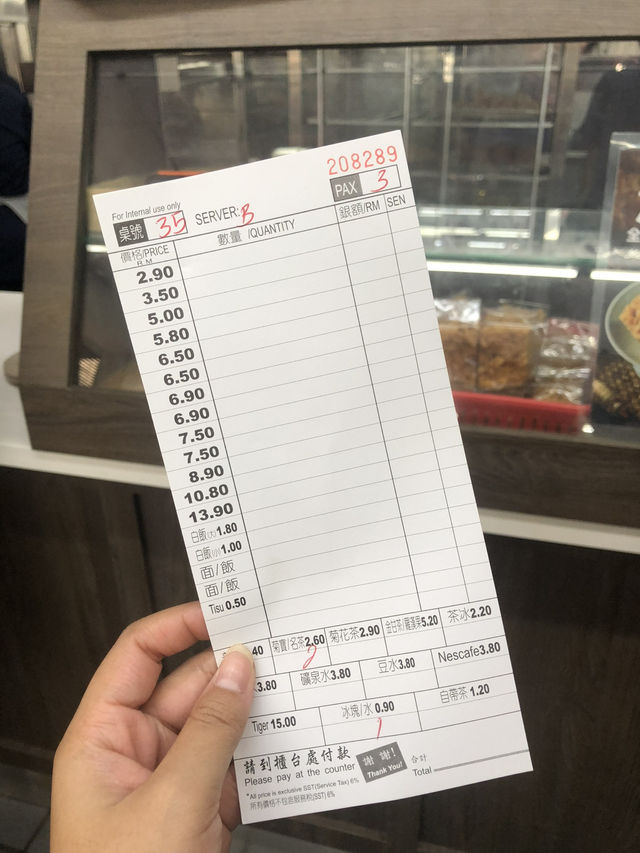 208289
For Internal use only
桌號 35 SERVER: B PAX 3
價格/PRICE R.M. 數量 /QUANTITY 銀額/RM SEN
2.90
3.50
5.00
5.80
6.50
6.50
6.90
6.90
7.50
7.50
8.90
10.80
13.90
白飯(大) 1.80
白飯(小) 1.00
面/飯
面/飯
Tisu 0.50
40 菊寶/名茶 2.60 菊花茶 2.90 金甘茶/羅漢果 5.20 茶冰 2.20
2
3.80 礦泉水 3.80 豆水 3.80 Nescafe 3.80
Tiger 15.00 冰塊/水 0.90 自帶茶 1.20
1
請到櫃台處付款 謝謝! 合計
Please pay at the counter Thank You! Total
*All price is exclusive SST(Service Tax) 6%
所有價格不包括服務稅(SST) 6%